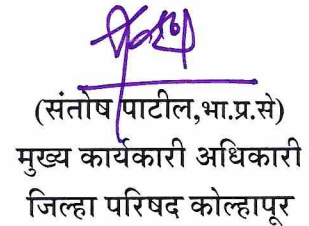 (संतोष पाटील,भा.प्र.से)
मुख्य कार्यकारी अधिकारी
जिल्हा परिषद कोल्हापूर